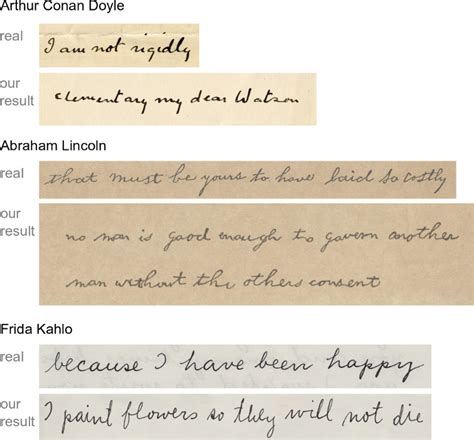 Arthur Conan Doyle
real
I am not rigidly
our result
elementary my dear Watson
Abraham Lincoln
real
that must be yours to have laid so costly
our result
no man is good enough to govern another
man without the others consent
Frida Kahlo
real
because I have been happy
our result
I paint flowers so they will not die